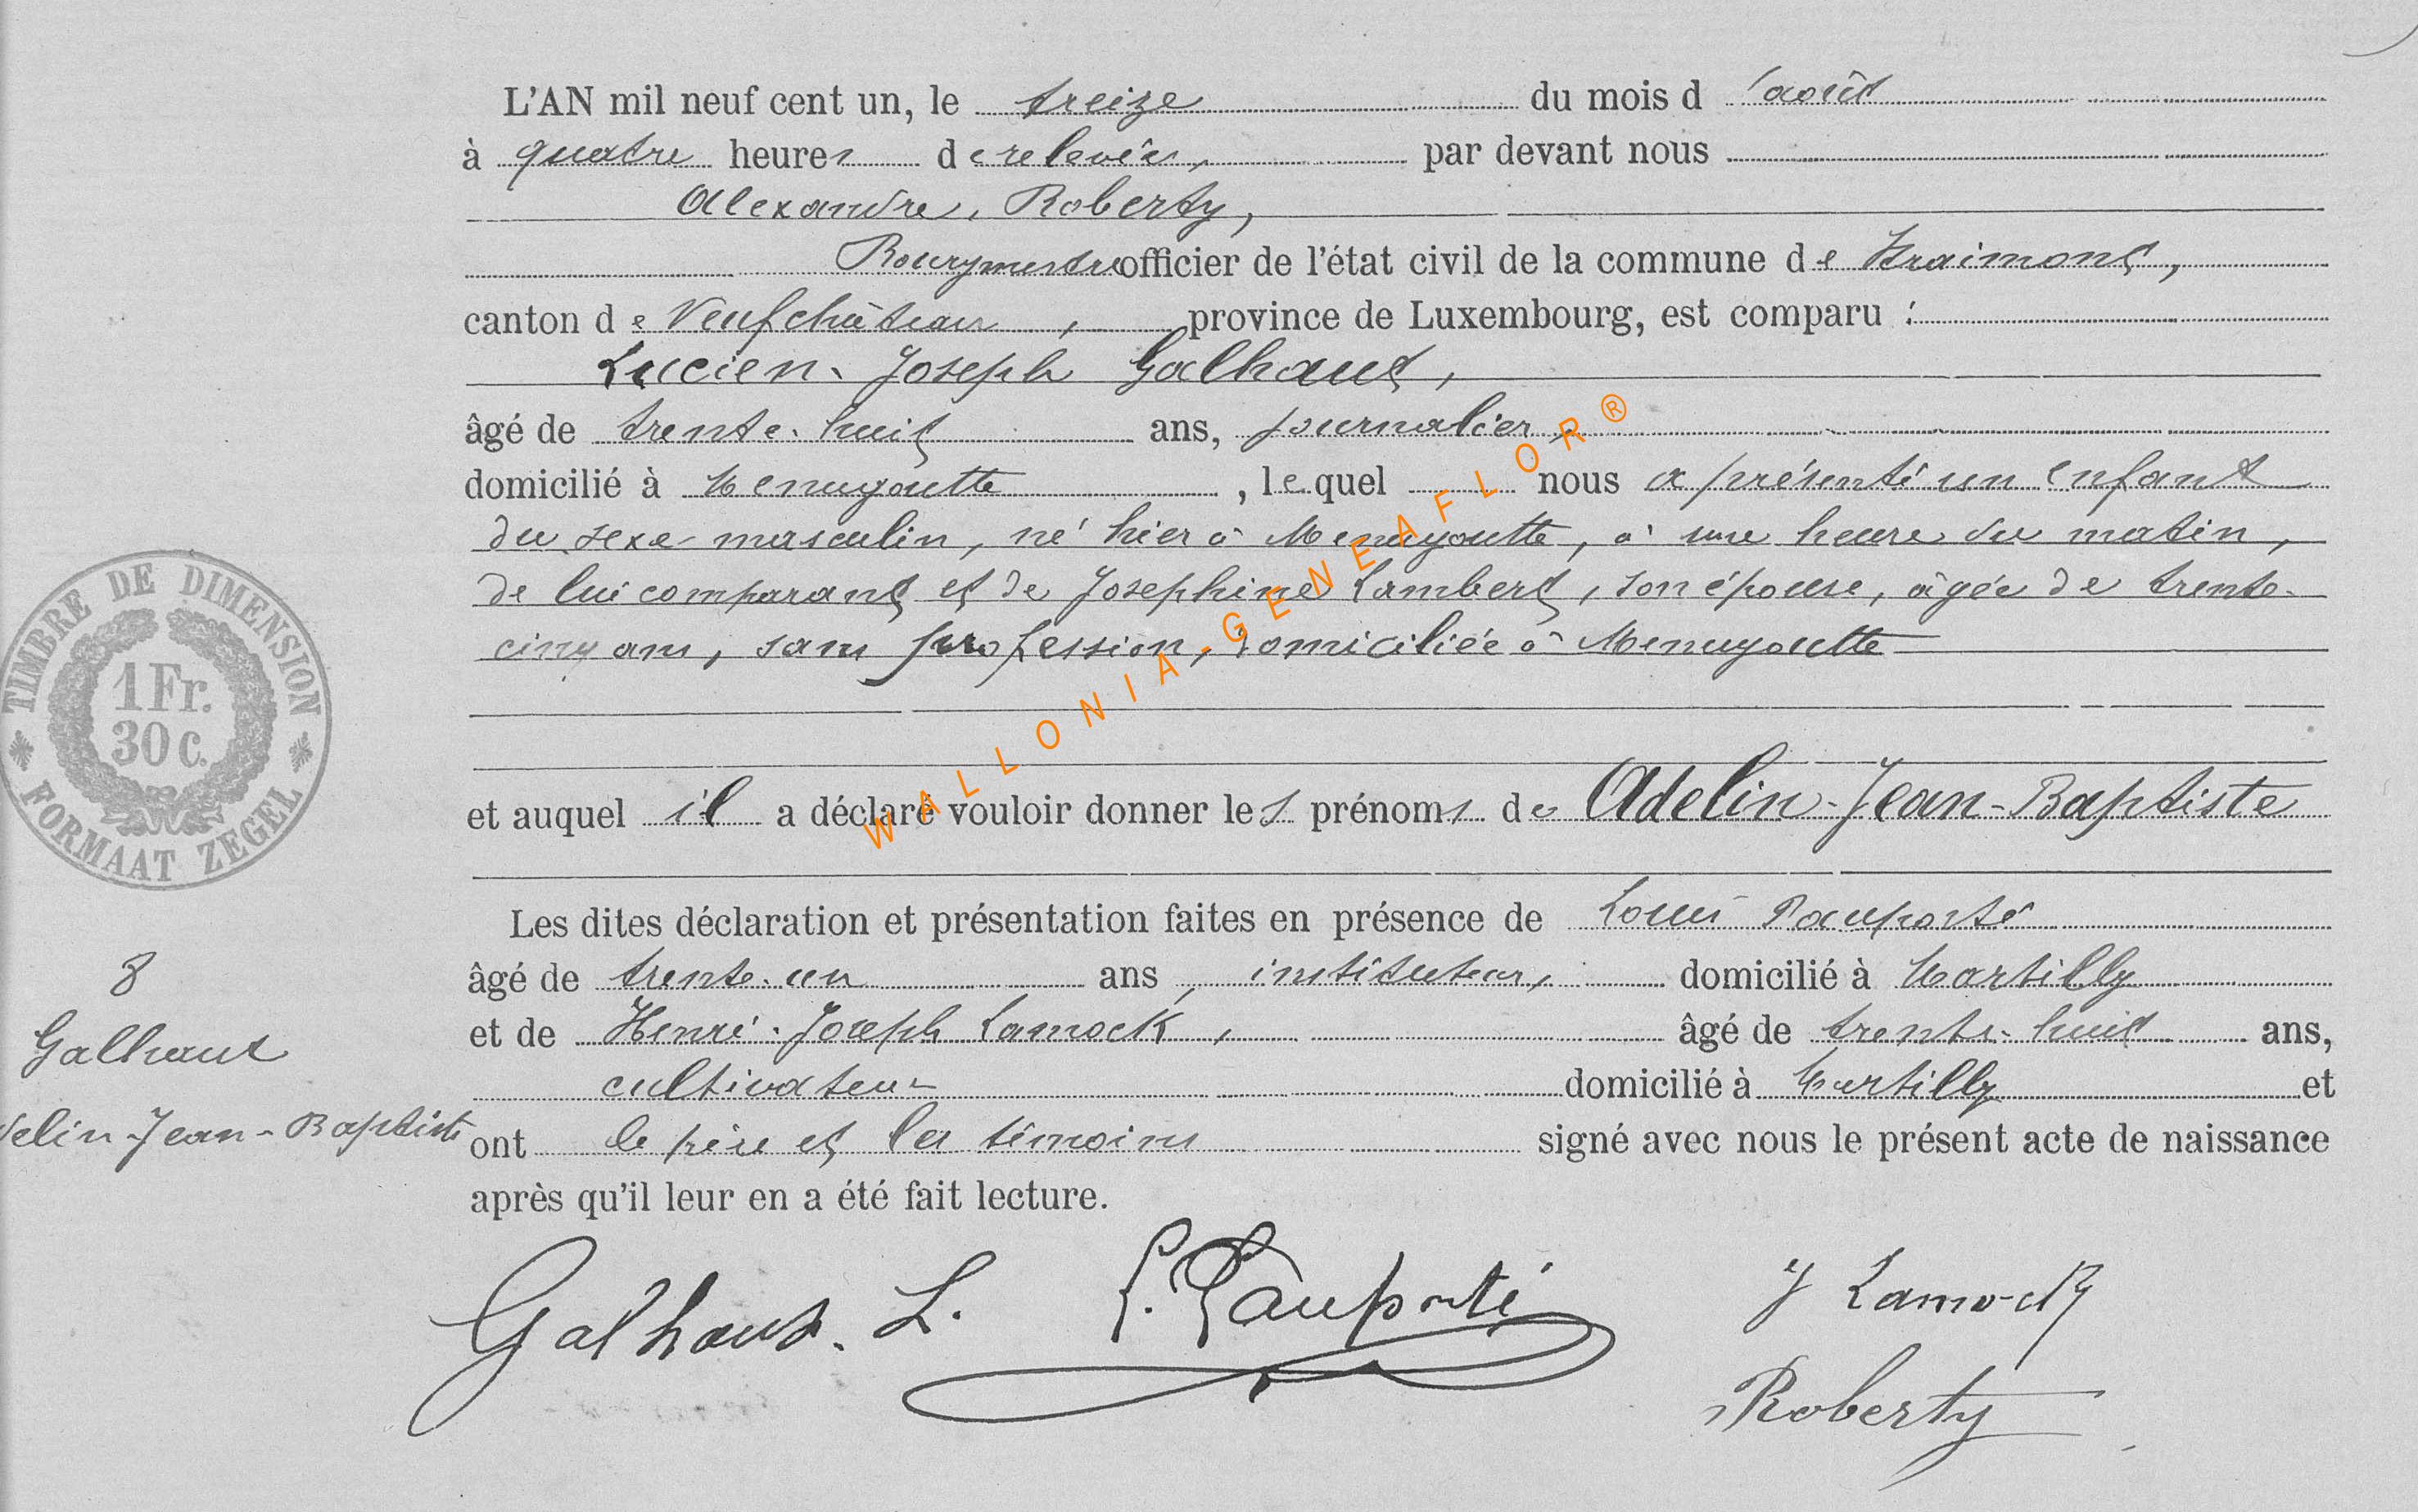 L'AN mil neuf cent un, le treize du mois d'août
à quatre heures de relevée, par devant nous
Alexandre, Roberty,
Bourgmestre officier de l'état civil de la commune de Straimont,
canton de Neufchâteau, province de Luxembourg, est comparu :
Lucien-Joseph Galhaut,
âgé de trente-huit ans, journalier,
domicilié à Menugoutte, lequel nous a présenté un enfant
du sexe masculin, né hier à Menugoutte, à une heure du matin,
de lui comparant et de Josephine Lambert, son épouse, âgée de trente-
cinq ans, sans profession, domiciliée à Menugoutte
et auquel il a déclaré vouloir donner les prénoms de Adelin-Jean-Baptiste
Les dites déclaration et présentation faites en présence de Louis Pauporté
âgé de trente-un ans, instituteur, domicilié à Martilly
et de Henri-Joseph Lamock, âgé de trente-huit ans,
cultivateur domicilié à Martilly et
ont le père et les témoins signé avec nous le présent acte de naissance
après qu'il leur en a été fait lecture.
Galhaut. L. L. Pauporté J Lamock
Roberty
TIMBRE DE DIMENSION
1 Fr.
30 c.
FORMAAT ZEGEL
8
Galhaut
delin-Jean-Baptiste
WALLONIA-GENEAFLOR®